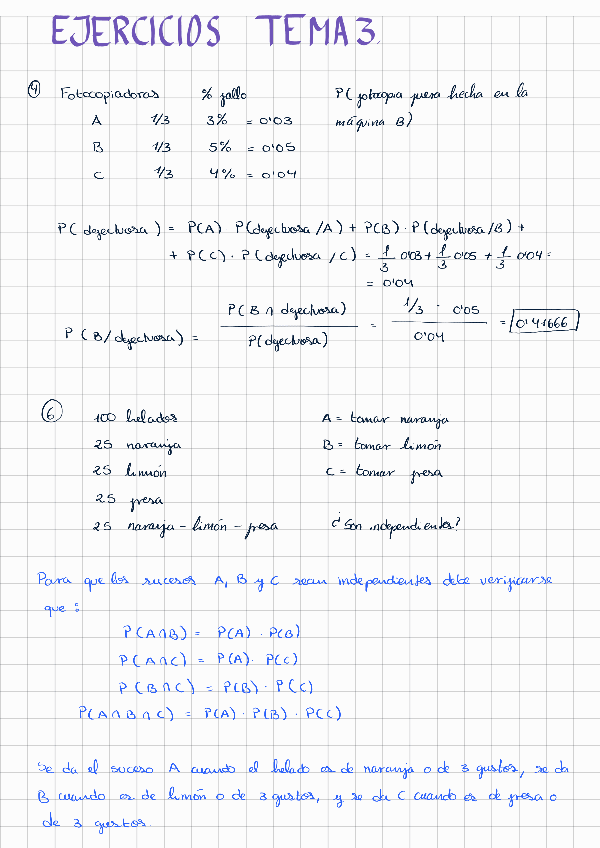 EJERCICIOS TEMA 3.
4 Fotocopiadoras % fallo P( fotocopia fuera hecha en la
A 1/3 3% = 0'03 máquina B)
B 1/3 5% = 0'05
C 1/3 4% = 0'04
P( defectuosa ) = P(A) P(defectuosa/A) + P(B) · P(defectuosa/B) +
+ P(C) · P(defectuosa/C) = 1/3 0'03 + 1/3 0'05 + 1/3 0'04 =
= 0'04
P(B/defectuosa) = P(B ∩ defectuosa) / P(defectuosa) = 1/3 · 0'05 / 0'04 = 0'41666
6 100 helados A = tomar naranja
25 naranja B = tomar limón
25 limón C = tomar fresa
25 fresa
25 naranja - limón - fresa ¿Son independientes?
Para que los sucesos A, B y C sean independientes debe verificarse
que:
P(A∩B) = P(A) · P(B)
P(A∩C) = P(A) · P(C)
P(B∩C) = P(B) · P(C)
P(A∩B∩C) = P(A) · P(B) · P(C)
Se da el suceso A cuando el helado es de naranja o de 3 gustos, se da
B cuando es de limón o de 3 gustos, y se da C cuando es de fresa o
de 3 gustos.